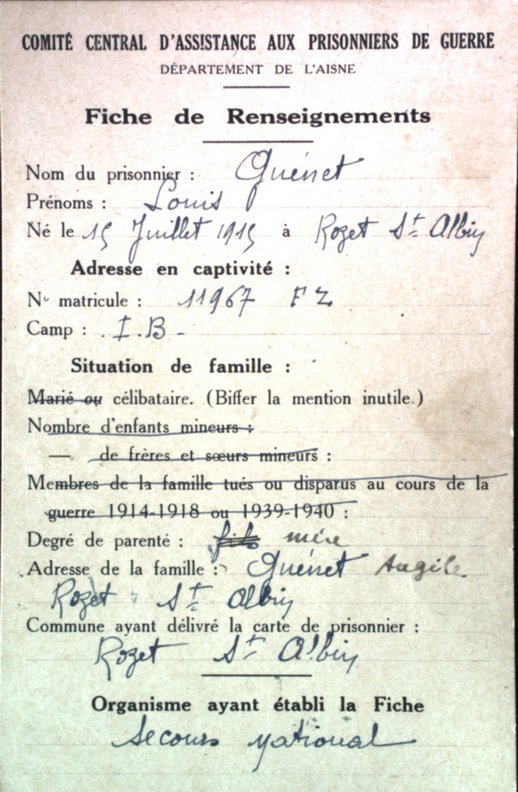 COMITÉ CENTRAL D'ASSISTANCE AUX PRISONNIERS DE GUERRE
DÉPARTEMENT DE L'AISNE
Fiche de Renseignements
Nom du prisonnier : Quénet
Prénoms : Louis
Né le 15 Juillet 1915 à Rozet St Albin
Adresse en captivité :
N° matricule : 11967 FZ
Camp : I.B -
Situation de famille :
Marié ou célibataire. (Biffer la mention inutile.)
Nombre d'enfants mineurs :
— de frères et sœurs mineurs :
Membres de la famille tués ou disparus au cours de la
guerre 1914-1918 ou 1939-1940 :
Degré de parenté : fils mère
Adresse de la famille : Quénet
Rozet St Albin
Commune ayant délivré la carte de prisonnier :
Rozet St Albin
Organisme ayant établi la Fiche
Secours national